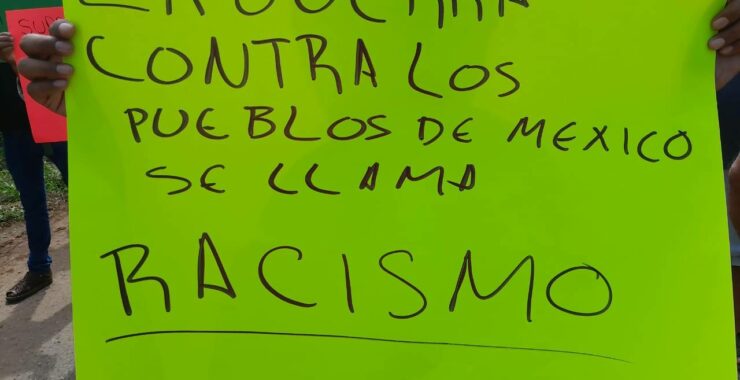 CONTRA LOS
PUEBLOS DE MEXICO
SE LLAMA
RACISMO